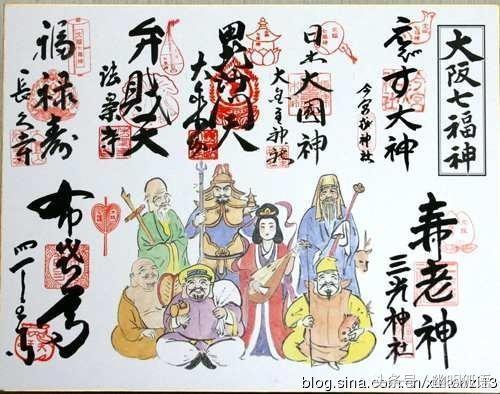 大阪七福神
す大神
今宮戎神社
日出大國神
大国主神社
毘沙門天
大乗坊
弁財天
法案寺
福禄寿
長久寺
寿老神
三光神社
布袋尊
四天王寺
头条号
blog.sina.com.cn